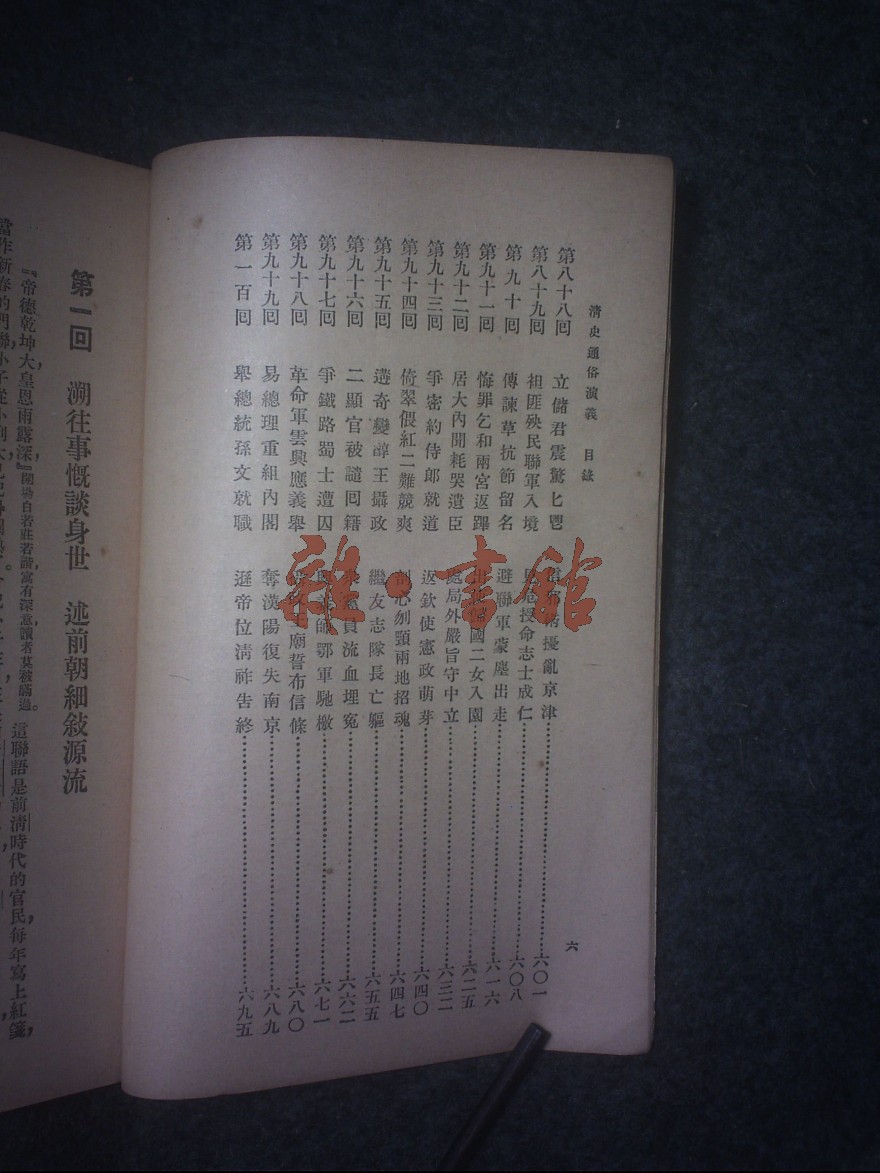 清史通俗演義 目錄 六
第八十八回 立儲君震驚匕鬯 擾亂京津 六〇一
第八十九回 袒匪殃民聯軍入境 危授命志士成仁 六〇八
第九十回 傳諫草抗節留名 避聯軍蒙塵出走 六一六
第九十一回 悔罪乞和兩宮返蹕 國二女入園 六二五
第九十二回 居大內聞耗哭遣臣 處局外嚴旨守中立 六三二
第九十三回 爭密約侍郎就道 返欽使憲政萌芽 六四〇
第九十四回 倚翠偎紅二難競爽 剖心刎頸兩地招魂 六四七
第九十五回 遘奇變醇王攝政 繼友志隊長亡軀 六五五
第九十六回 二顯官被譴回籍 黨員流血埋冤 六六二
第九十七回 爭鐵路蜀士遭囚 師鄂軍馳檄 六七一
第九十八回 革命軍雲興應義舉 攝政王廟誓布信條 六八〇
第九十九回 易總理重組內閣 奪漢陽復失南京 六八九
第一百回 舉總統孫文就職 遜帝位清祚告終 六九五
雜·書館
第一回 溯往事慨談身世 述前朝細敍源流
『帝德乾坤大,皇恩雨露深。』開場白若莊若諧,富有深意,讀者莫被瞞過。這聯語是前清時代的官民,每年寫上紅箋,
當作新春的門聯,小子從小到大,